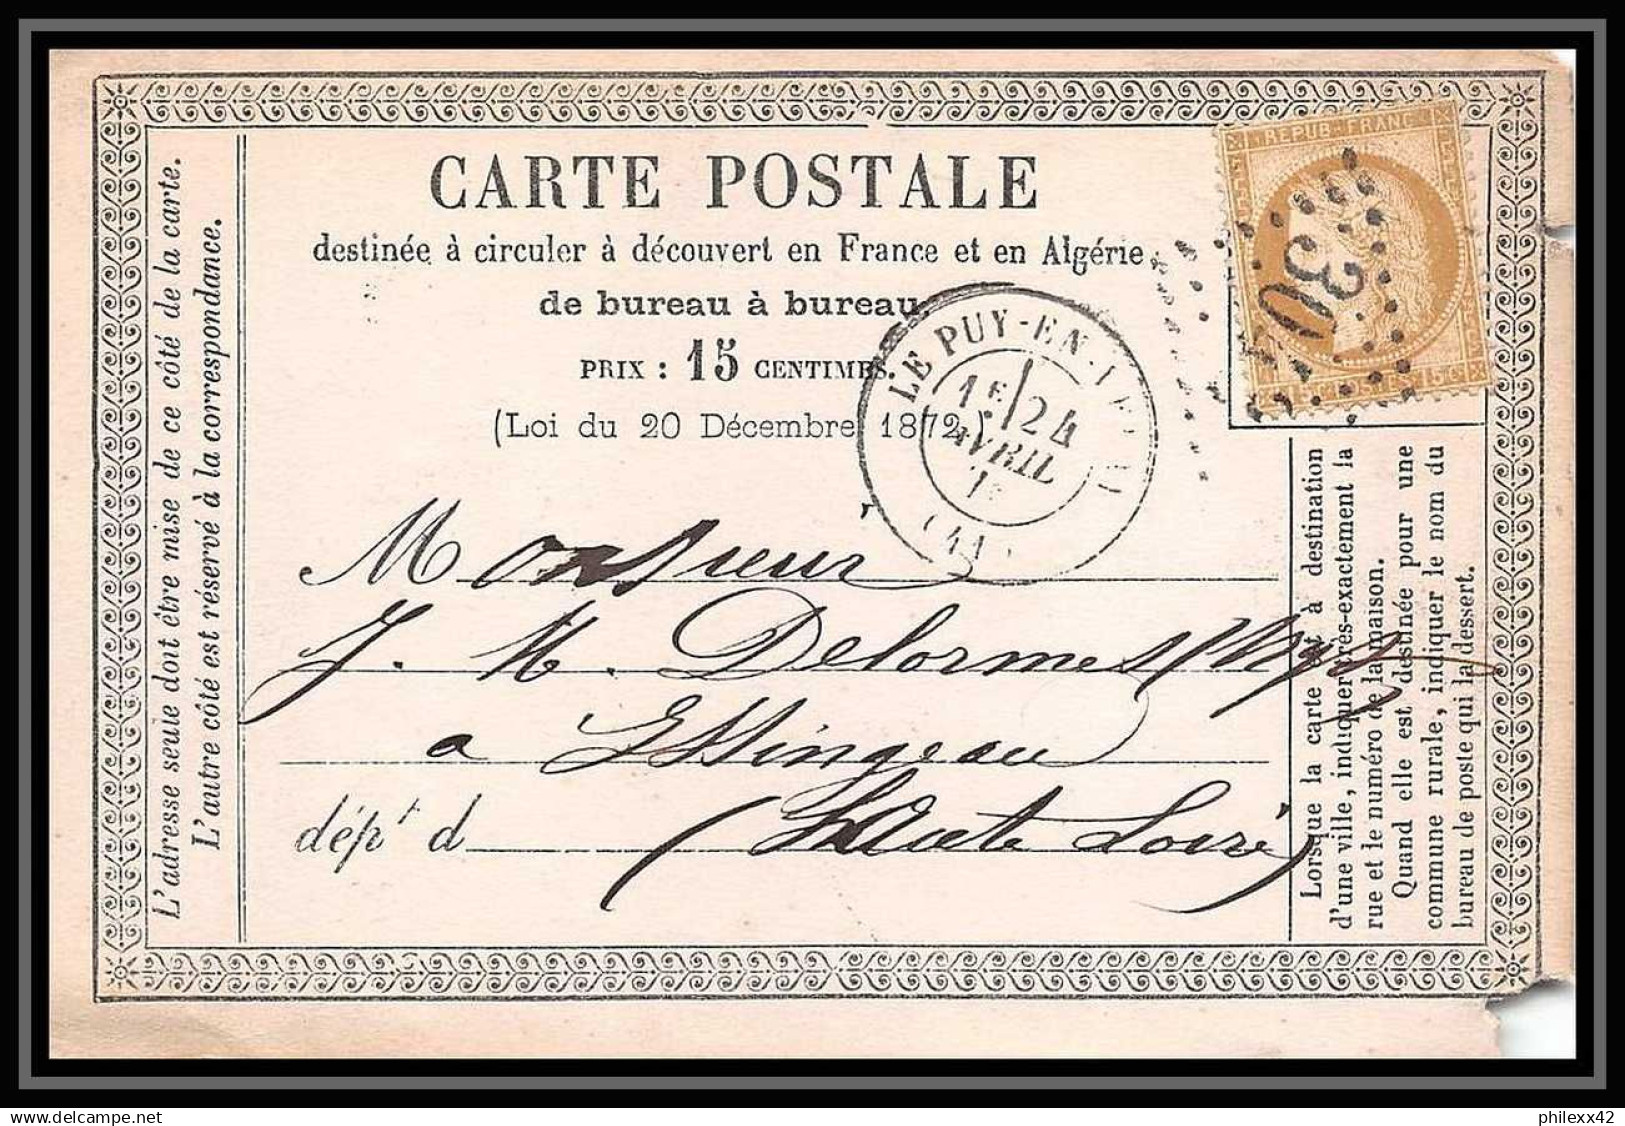 CARTE POSTALE
destinée à circuler à découvert en France et en Algérie
de bureau à bureau
PRIX : 15 CENTIMES.
(Loi du 20 Décembre 1872)
REPUB·FRANC
LE PUY-EN-VELAY
1E 24
AVRIL
Monsieur
J. M. Delorme
a Yssingeau
dépt d (Haute Loire)
L'adresse seule doit être mise de ce côté de la carte.
L'autre côté est réservé à la correspondance.
Lorsque la carte est à destination
d'une ville, indiquer très-exactement la
rue et le numéro de la maison.
Quand elle est destinée pour une
commune rurale, indiquer le nom du
bureau de poste qui la dessert.
www.delcampe.net
philexx42